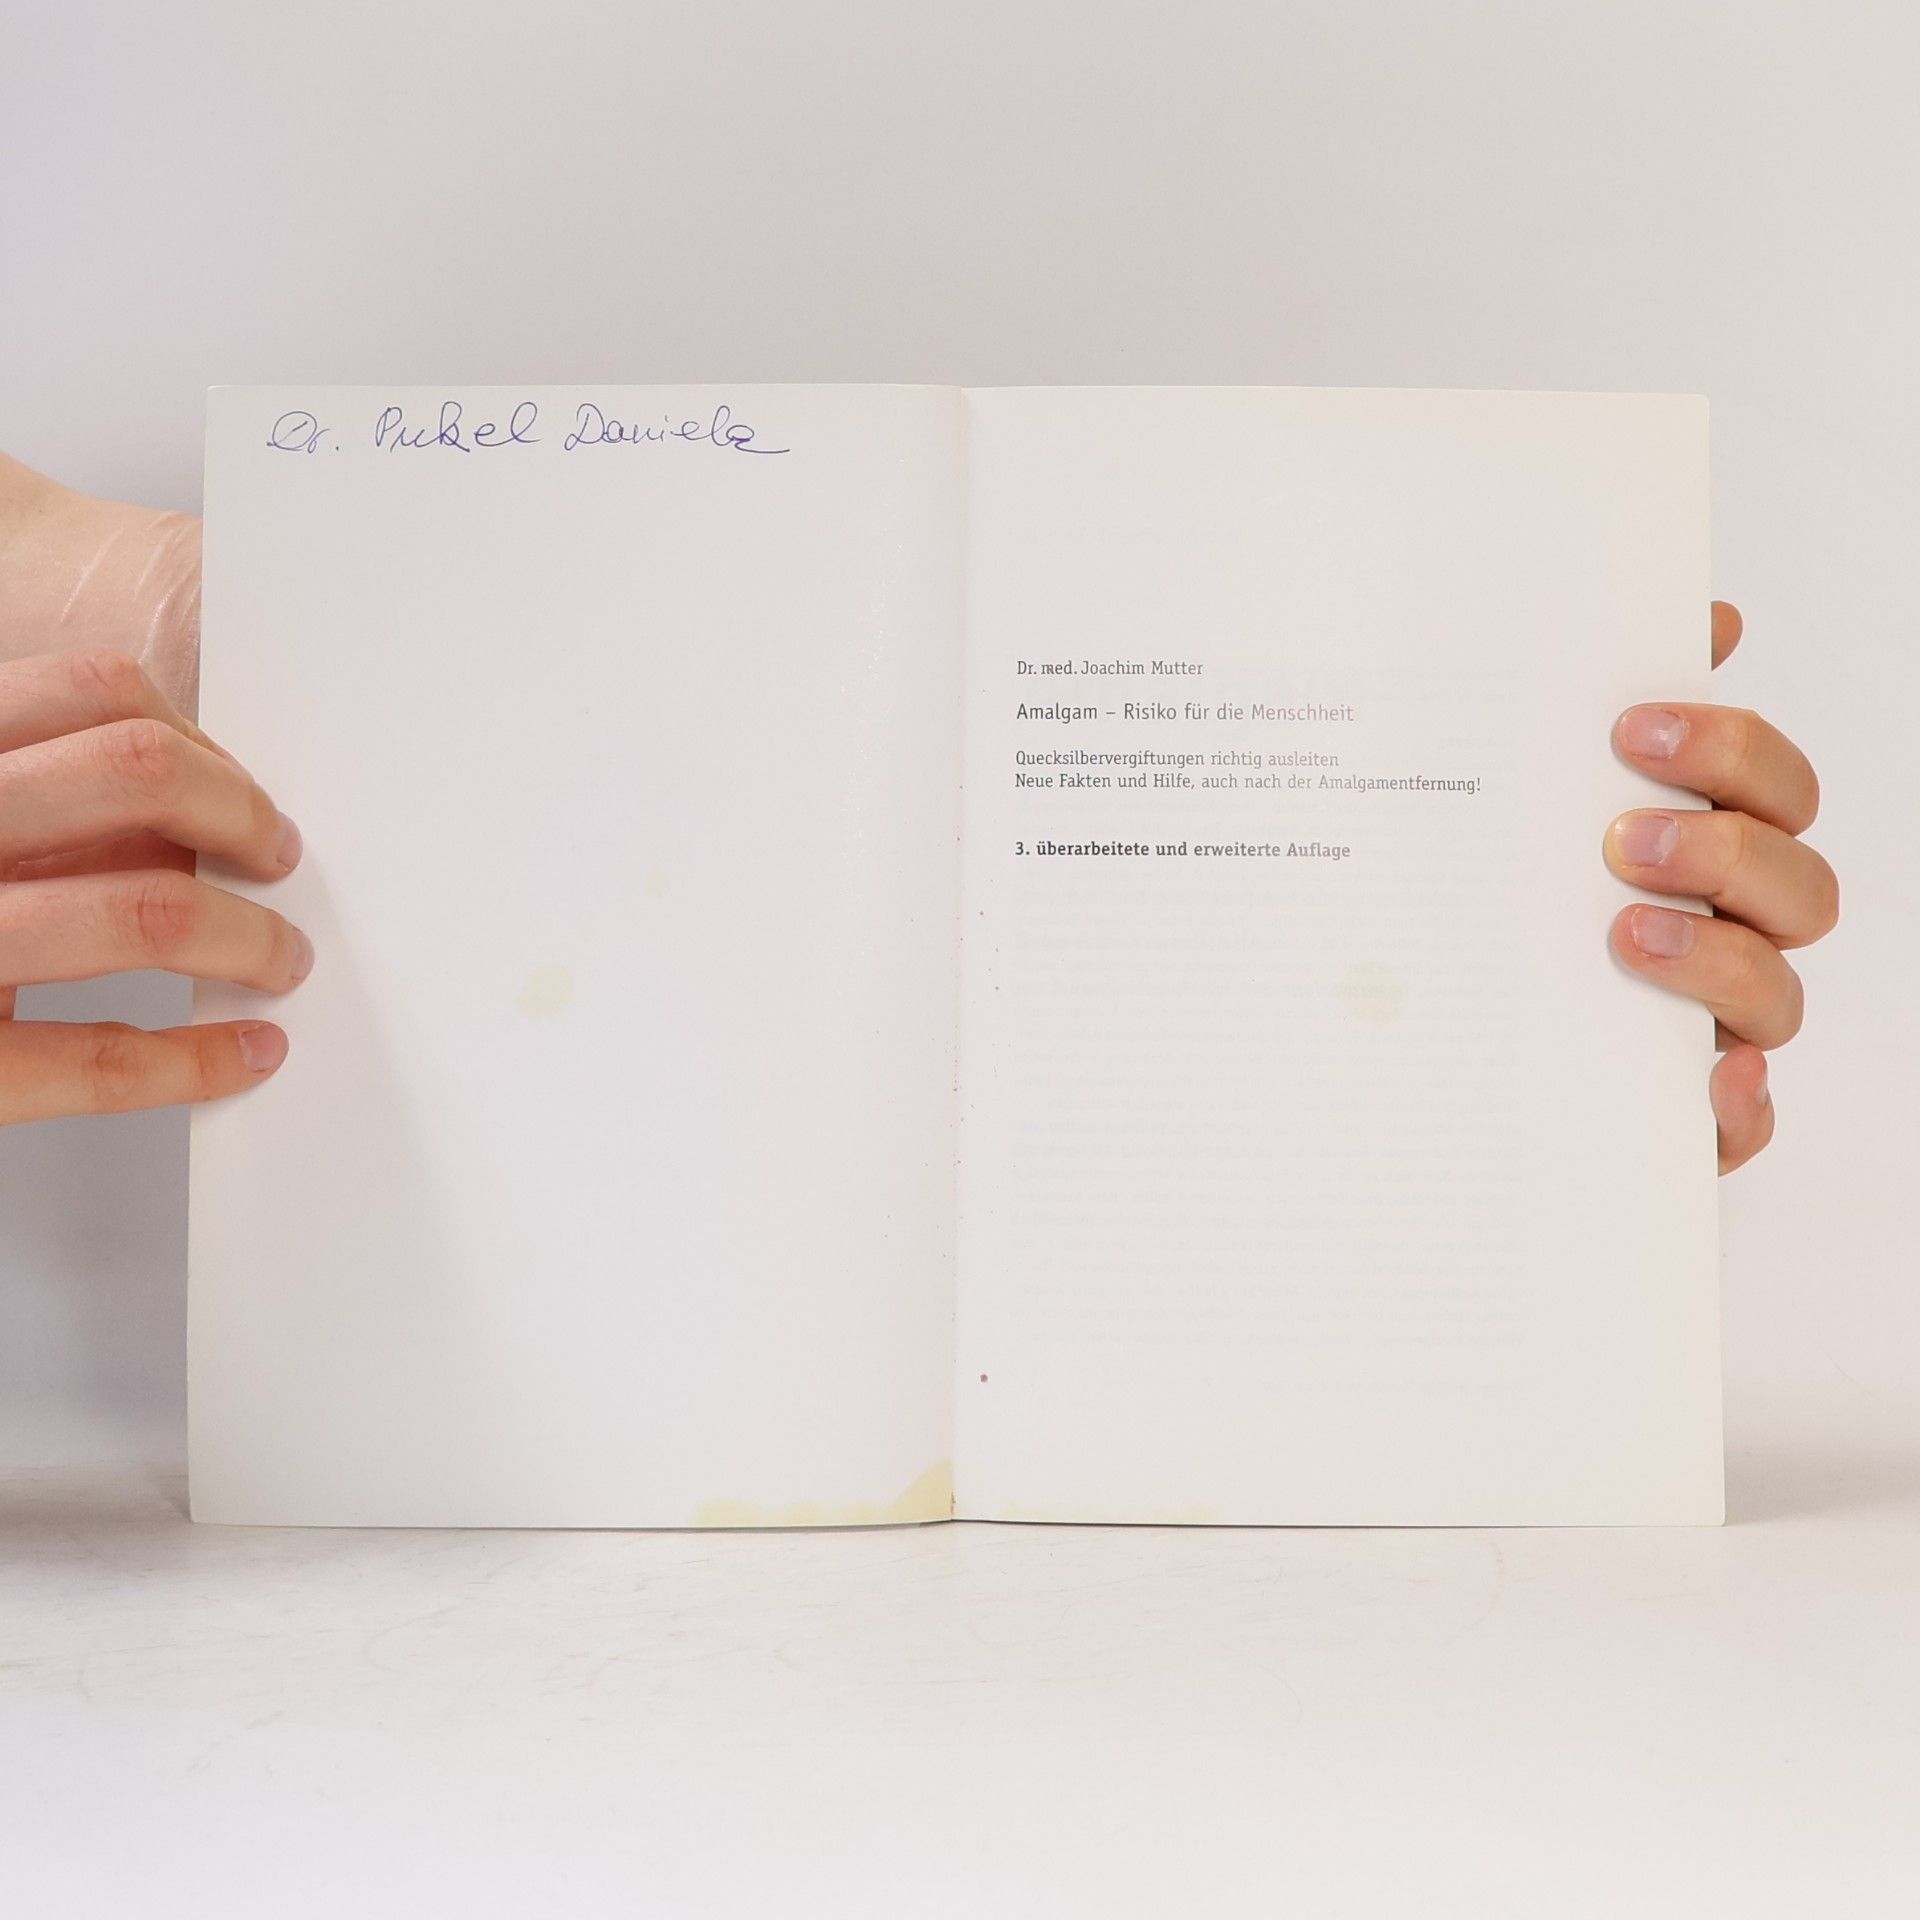 Dr. Pukel Daniela
Dr. med. Joachim Mutter
Amalgam – Risiko für die Menschheit
Quecksilbervergiftungen richtig ausleiten
Neue Fakten und Hilfe, auch nach der Amalgamentfernung!
3. überarbeitete und erweiterte Auflage